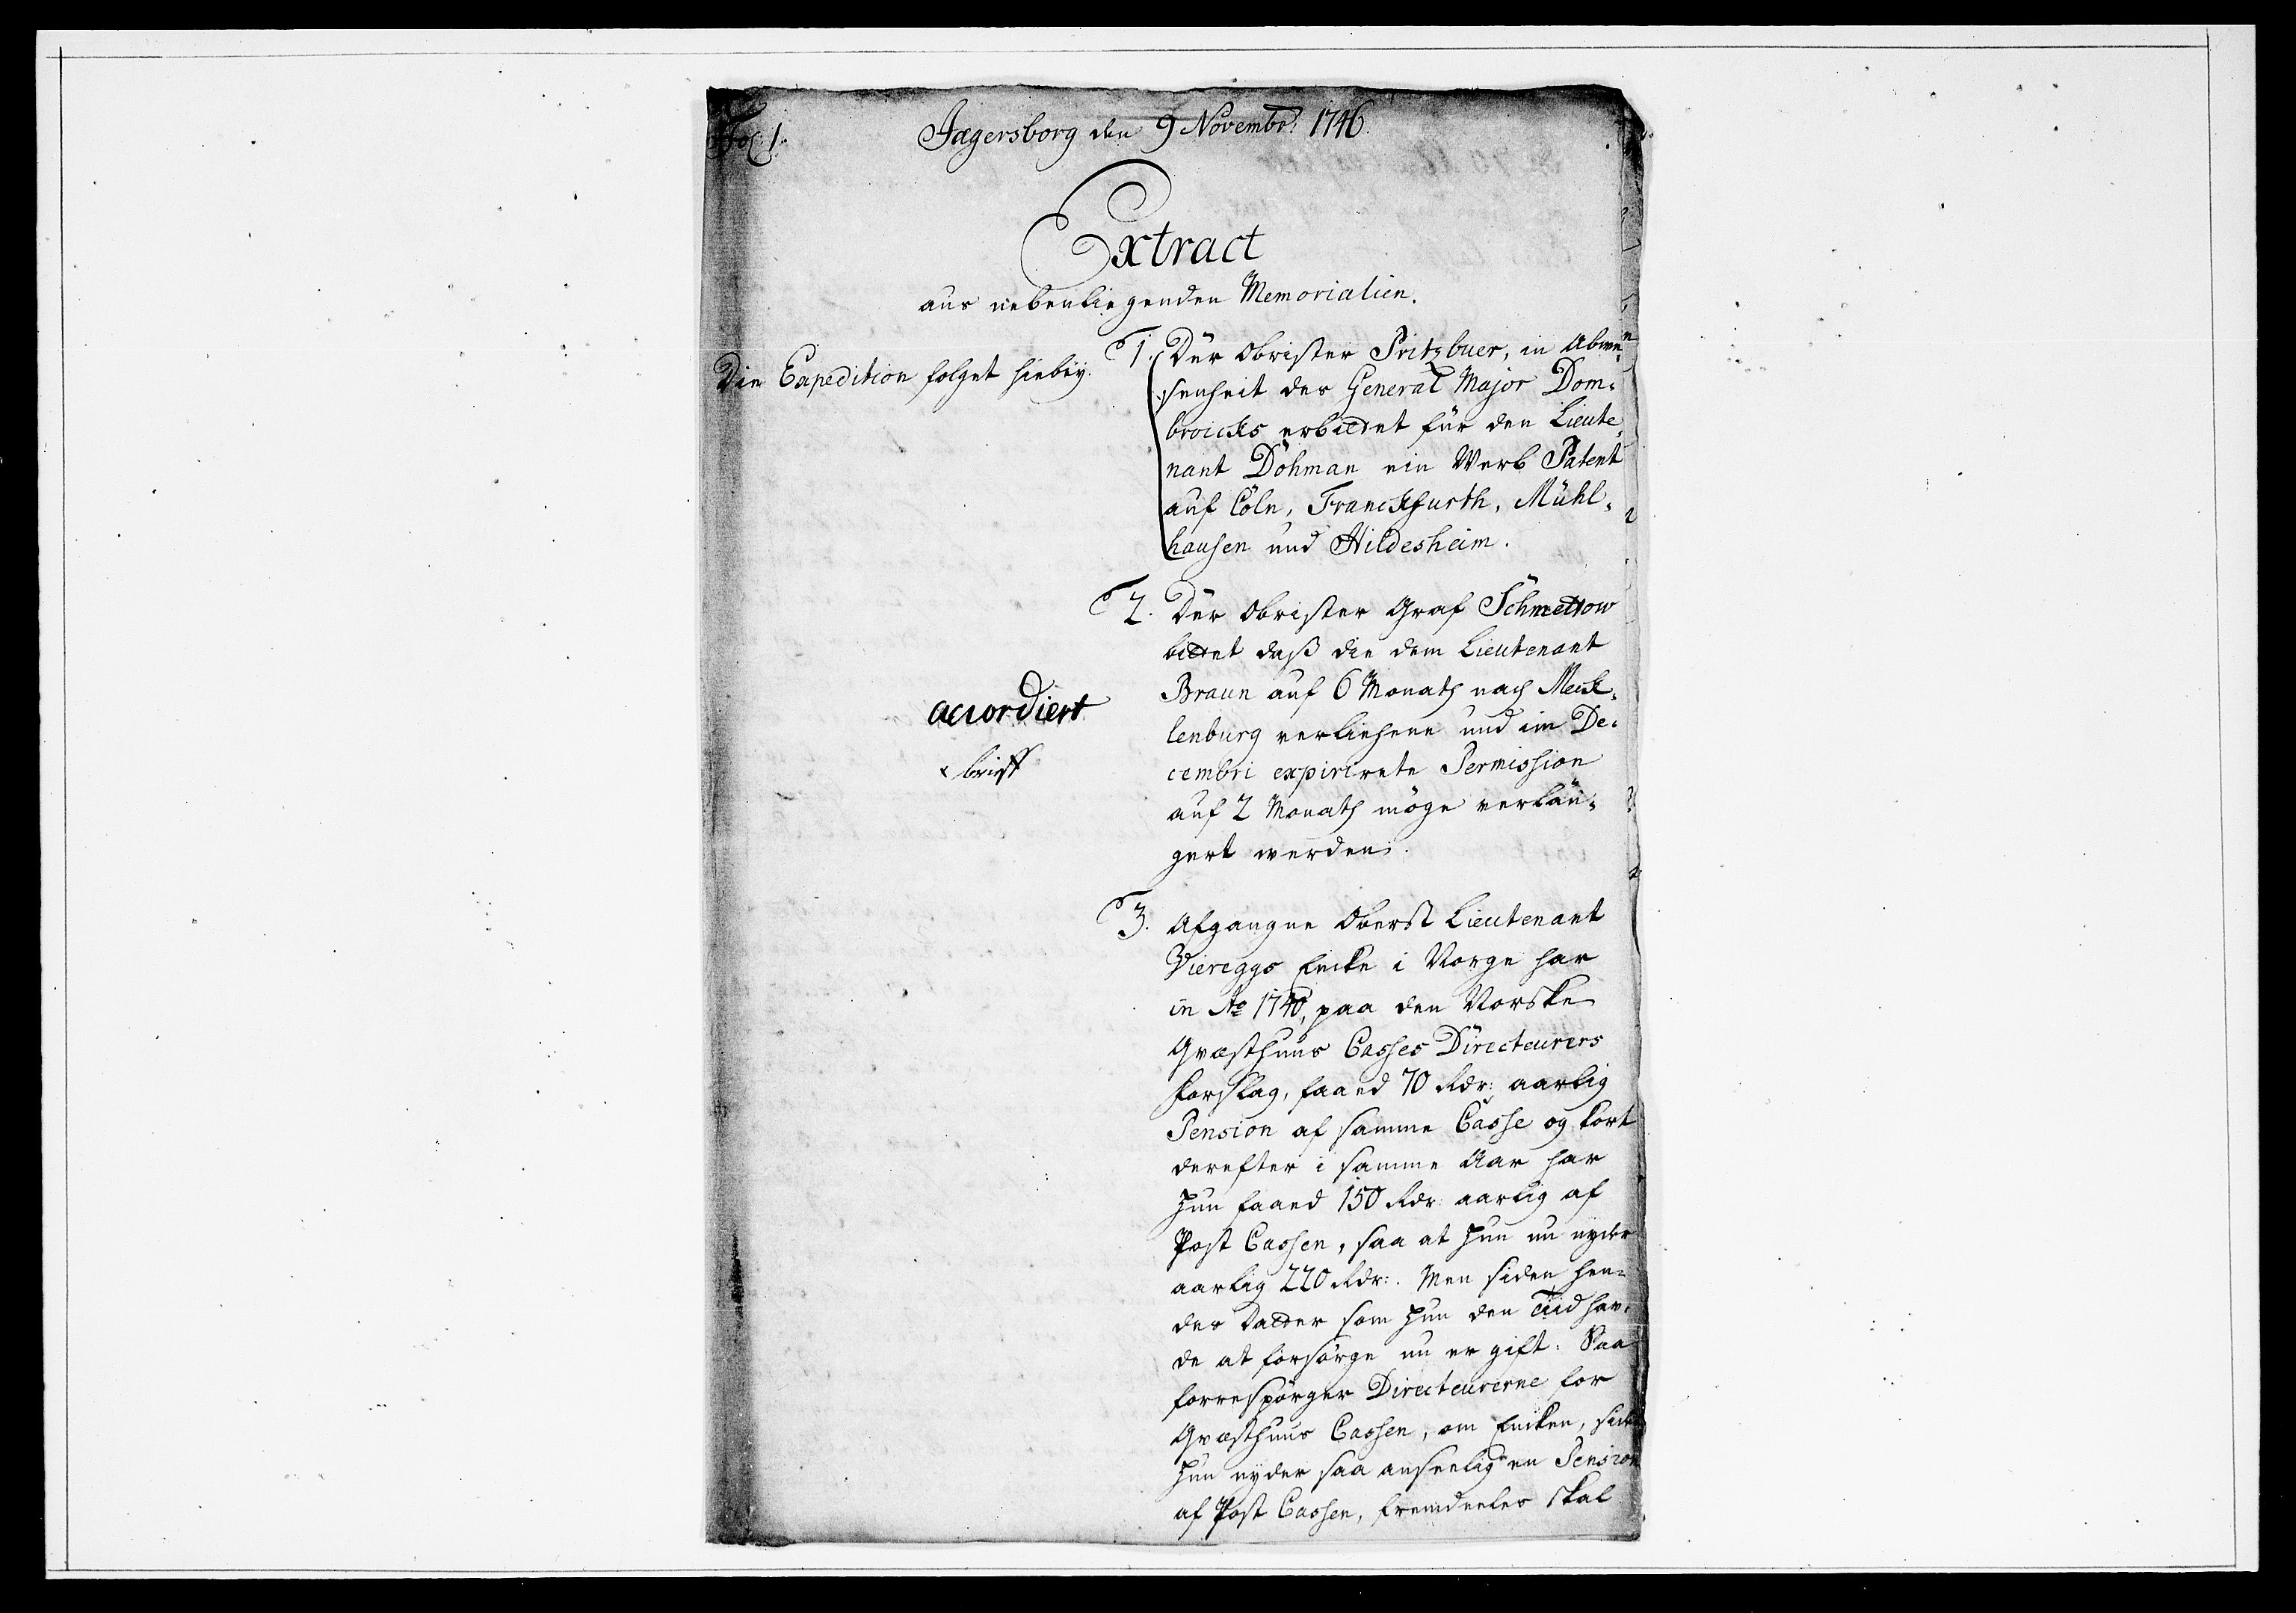 Fol: 1.
Jægersborg den 9 Novembr: 1746.
Extract
aus nebenliegenden Memorialien.
Die Expedition folget hiebey.
1. Der Obrister Pritzbuer, in Abwe-
senheit des General Major Dom-
broicks erbittet für den Lieute-
nant Döhman ein Werb Patent
auf Cöln, Franckfurth, Mühl-
hausen und Hildesheim.
2. Der Obrister Graf Schmettow
bittet daß die dem Lieutenant
Braun auf 6 Monath nach Meck-
lenburg verliehene und im De-
cembri expirirete Permission
auf 2 Monath möge verlän-
gert werden.
accordiert
brieff
3. Afgangne Oberst Lieutenant
Viereggs Encke i Norge har
in Ao 1740, paa den Norske
Qvæsthuus Casses Directeurers
forslag, faaed 70 Rdr: aarlig
Pension af samme Casse og kort
derefter i samme Aar har
hun faaed 150 Rdr: aarlig af
Post Cassen, saa at hun nu nyder
aarlig 220 Rdr:. Men siden hen-
des Datter som hun den Tiid hav-
de at forsörge nu er gift: Saa
forrespörger Directeurerne for
Qvæsthuus Cassen, om Encken, siden
hun nyder saa anseelig en Pension
af Post Cassen, fremdeeles skal